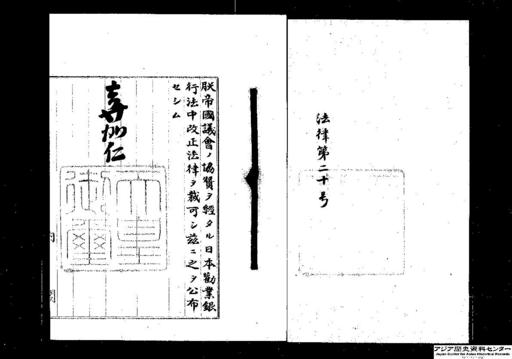 法律第二十号
朕帝國議會ノ協賛ヲ經タル日本勸業銀
行法中改正法律ヲ裁可シ茲ニ之ヲ公布
セシム
嘉仁
内閣
アジア歴史資料センター
Japan Center for Asian Historical Records